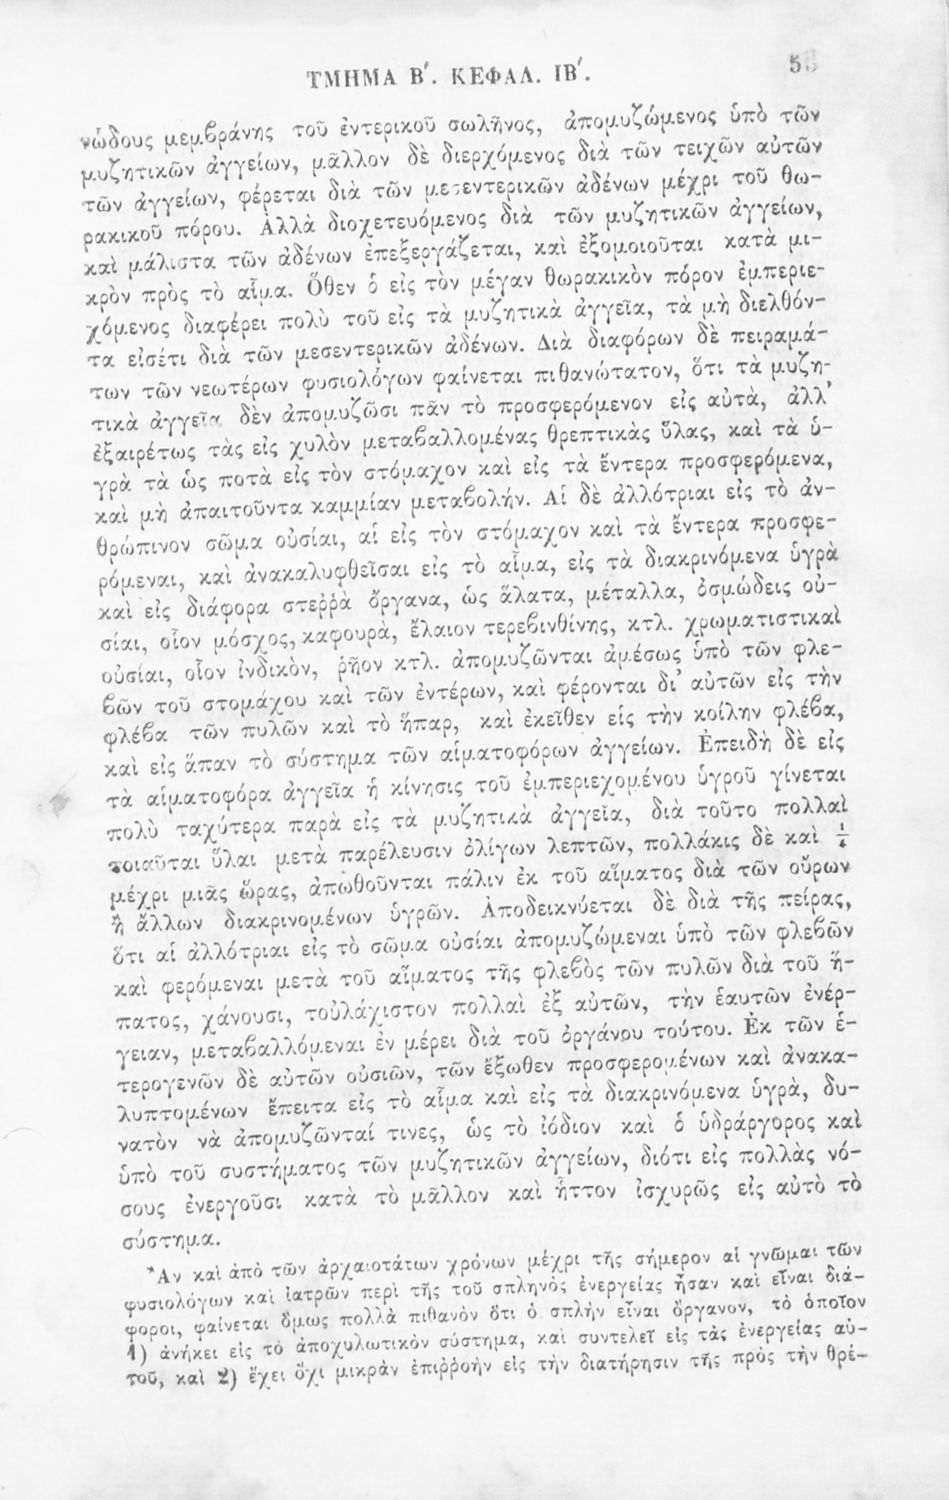 ΤΜΗΜΑ Β΄. ΚΕΦΑΛ. ΙΒ΄.
νώδους μεμβράνης τοῦ ἐντερικοῦ σωλῆνος, ἀπομυζώμενος ὑπὸ τῶν
μυζητικῶν ἀγγείων, μᾶλλον δὲ διερχόμενος διὰ τῶν τειχῶν αὐτῶν
τῶν ἀγγείων, φέρεται διὰ τῶν μεσεντερικῶν ἀδένων μέχρι τοῦ θω-
ρακικοῦ πόρου. Ἀλλὰ διοχετευόμενος διὰ τῶν μυζητικῶν ἀγγείων,
καὶ μάλιστα τῶν ἀδένων ἐπεξεργάζεται, καὶ ἐξομοιοῦται κατὰ μι-
κρὸν πρὸς τὸ αἷμα. Ὅθεν ὁ εἰς τὸν μέγαν θωρακικὸν πόρον ἐμπεριε-
χόμενος διαφέρει πολὺ τοῦ εἰς τὰ μυζητικὰ ἀγγεῖα, τὰ μὴ διελθόν-
τα εἰσέτι διὰ τῶν μεσεντερικῶν ἀδένων. Διὰ διαφόρων δὲ πειραμά-
των τῶν νεωτέρων φυσιολόγων φαίνεται πιθανώτατον, ὅτι τὰ μυζη-
τικὰ ἀγγεῖα δὲν ἀπομυζῶσι πᾶν τὸ προσφερόμενον εἰς αὐτὰ, ἀλλ᾽
ἐξαιρέτως τὰς εἰς χυλὸν μεταβαλλομένας θρεπτικὰς ὕλας, καὶ τὰ ὑ-
γρὰ τὰ ὡς ποτὰ εἰς τὸν στόμαχον καὶ εἰς τὰ ἔντερα προσφερόμενα,
καὶ μὴ ἀπαιτοῦντα καμμίαν μεταβολήν. Αἱ δὲ ἀλλότριαι εἰς τὸ ἀν-
θρώπινον σῶμα οὐσίαι, αἱ εἰς τὸν στόμαχον καὶ τὰ ἔντερα προσφε-
ρόμεναι, καὶ ἀνακαλυφθεῖσαι εἰς τὸ αἷμα, εἰς τὰ διακρινόμενα ὑγρὰ
καὶ εἰς διάφορα στεῤῥὰ ὄργανα, ὡς ἅλατα, μέταλλα, ὀσμώδεις οὐ-
σίαι, οἷον μόσχος, καφουρὰ, ἔλαιον τερεβινθίνης, κτλ. χρωματιστικαὶ
οὐσίαι, οἷον ἰνδικὸν, ῥῆον κτλ. ἀπομυζῶνται ἀμέσως ὑπὸ τῶν φλε-
βῶν τοῦ στομάχου καὶ τῶν ἐντέρων, καὶ φέρονται δι᾽ αὐτῶν εἰς τὴν
φλέβα τῶν πυλῶν καὶ τὸ ἧπαρ, καὶ ἐκεῖθεν εἰς τὴν κοίλην φλέβα,
καὶ εἰς ἅπαν τὸ σύστημα τῶν αἱματοφόρων ἀγγείων. Ἐπειδὴ δὲ εἰς
τὰ αἱματοφόρα ἀγγεῖα ἡ κίνησις τοῦ ἐμπεριεχομένου ὑγροῦ γίνεται
πολὺ ταχύτερα παρὰ εἰς τὰ μυζητικὰ ἀγγεῖα, διὰ τοῦτο πολλαὶ
τοιαῦται ὕλαι μετὰ παρέλευσιν ὀλίγων λεπτῶν, πολλάκις δὲ καὶ ¼
μέχρι μιᾶς ὥρας, ἀπωθοῦνται πάλιν ἐκ τοῦ αἵματος διὰ τῶν οὔρων
ἢ ἄλλων διακρινομένων ὑγρῶν. Ἀποδεικνύεται δὲ διὰ τῆς πείρας,
ὅτι αἱ ἀλλότριαι εἰς τὸ σῶμα οὐσίαι ἀπομυζώμεναι ὑπὸ τῶν φλεβῶν
καὶ φερόμεναι μετὰ τοῦ αἵματος τῆς φλεβὸς τῶν πυλῶν διὰ τοῦ ἥ-
πατος, χάνουσι, τοὐλάχιστον πολλαὶ ἐξ αὐτῶν, τὴν ἑαυτῶν ἐνέρ-
γειαν, μεταβαλλόμεναι ἐν μέρει διὰ τοῦ ὀργάνου τούτου. Ἐκ τῶν ἑ-
τερογενῶν δὲ αὐτῶν οὐσιῶν, τῶν ἔξωθεν προσφερομένων καὶ ἀνακα-
λυπτομένων ἔπειτα εἰς τὸ αἷμα καὶ εἰς τὰ διακρινόμενα ὑγρὰ, δυ-
νατὸν νὰ ἀπομυζῶνταί τινες, ὡς τὸ ἰόδιον καὶ ὁ ὑδράργυρος καὶ
ὑπὸ τοῦ συστήματος τῶν μυζητικῶν ἀγγείων, διότι εἰς πολλὰς νό-
σους ἐνεργοῦσι κατὰ τὸ μᾶλλον καὶ ἧττον ἰσχυρῶς εἰς αὐτὸ τὸ
σύστημα.
Ἂν καὶ ἀπὸ τῶν ἀρχαιοτάτων χρόνων μέχρι τῆς σήμερον αἱ γνῶμαι τῶν
φυσιολόγων καὶ ἰατρῶν περὶ τῆς τοῦ σπληνὸς ἐνεργείας ἦσαν καὶ εἶναι διά-
φοροι, φαίνεται ὅμως πολλὰ πιθανὸν ὅτι ὁ σπλὴν εἶναι ὄργανον, τὸ ὁποῖον
1) ἀνήκει εἰς τὸ ἀποχυλωτικὸν σύστημα, καὶ συντελεῖ εἰς τὰς ἐνεργείας αὐ-
τοῦ, καὶ 2) ἔχει ὄχι μικρὰν ἐπιῤῥοὴν εἰς τὴν διατήρησιν τῆς πρὸς τὴν θρέ-